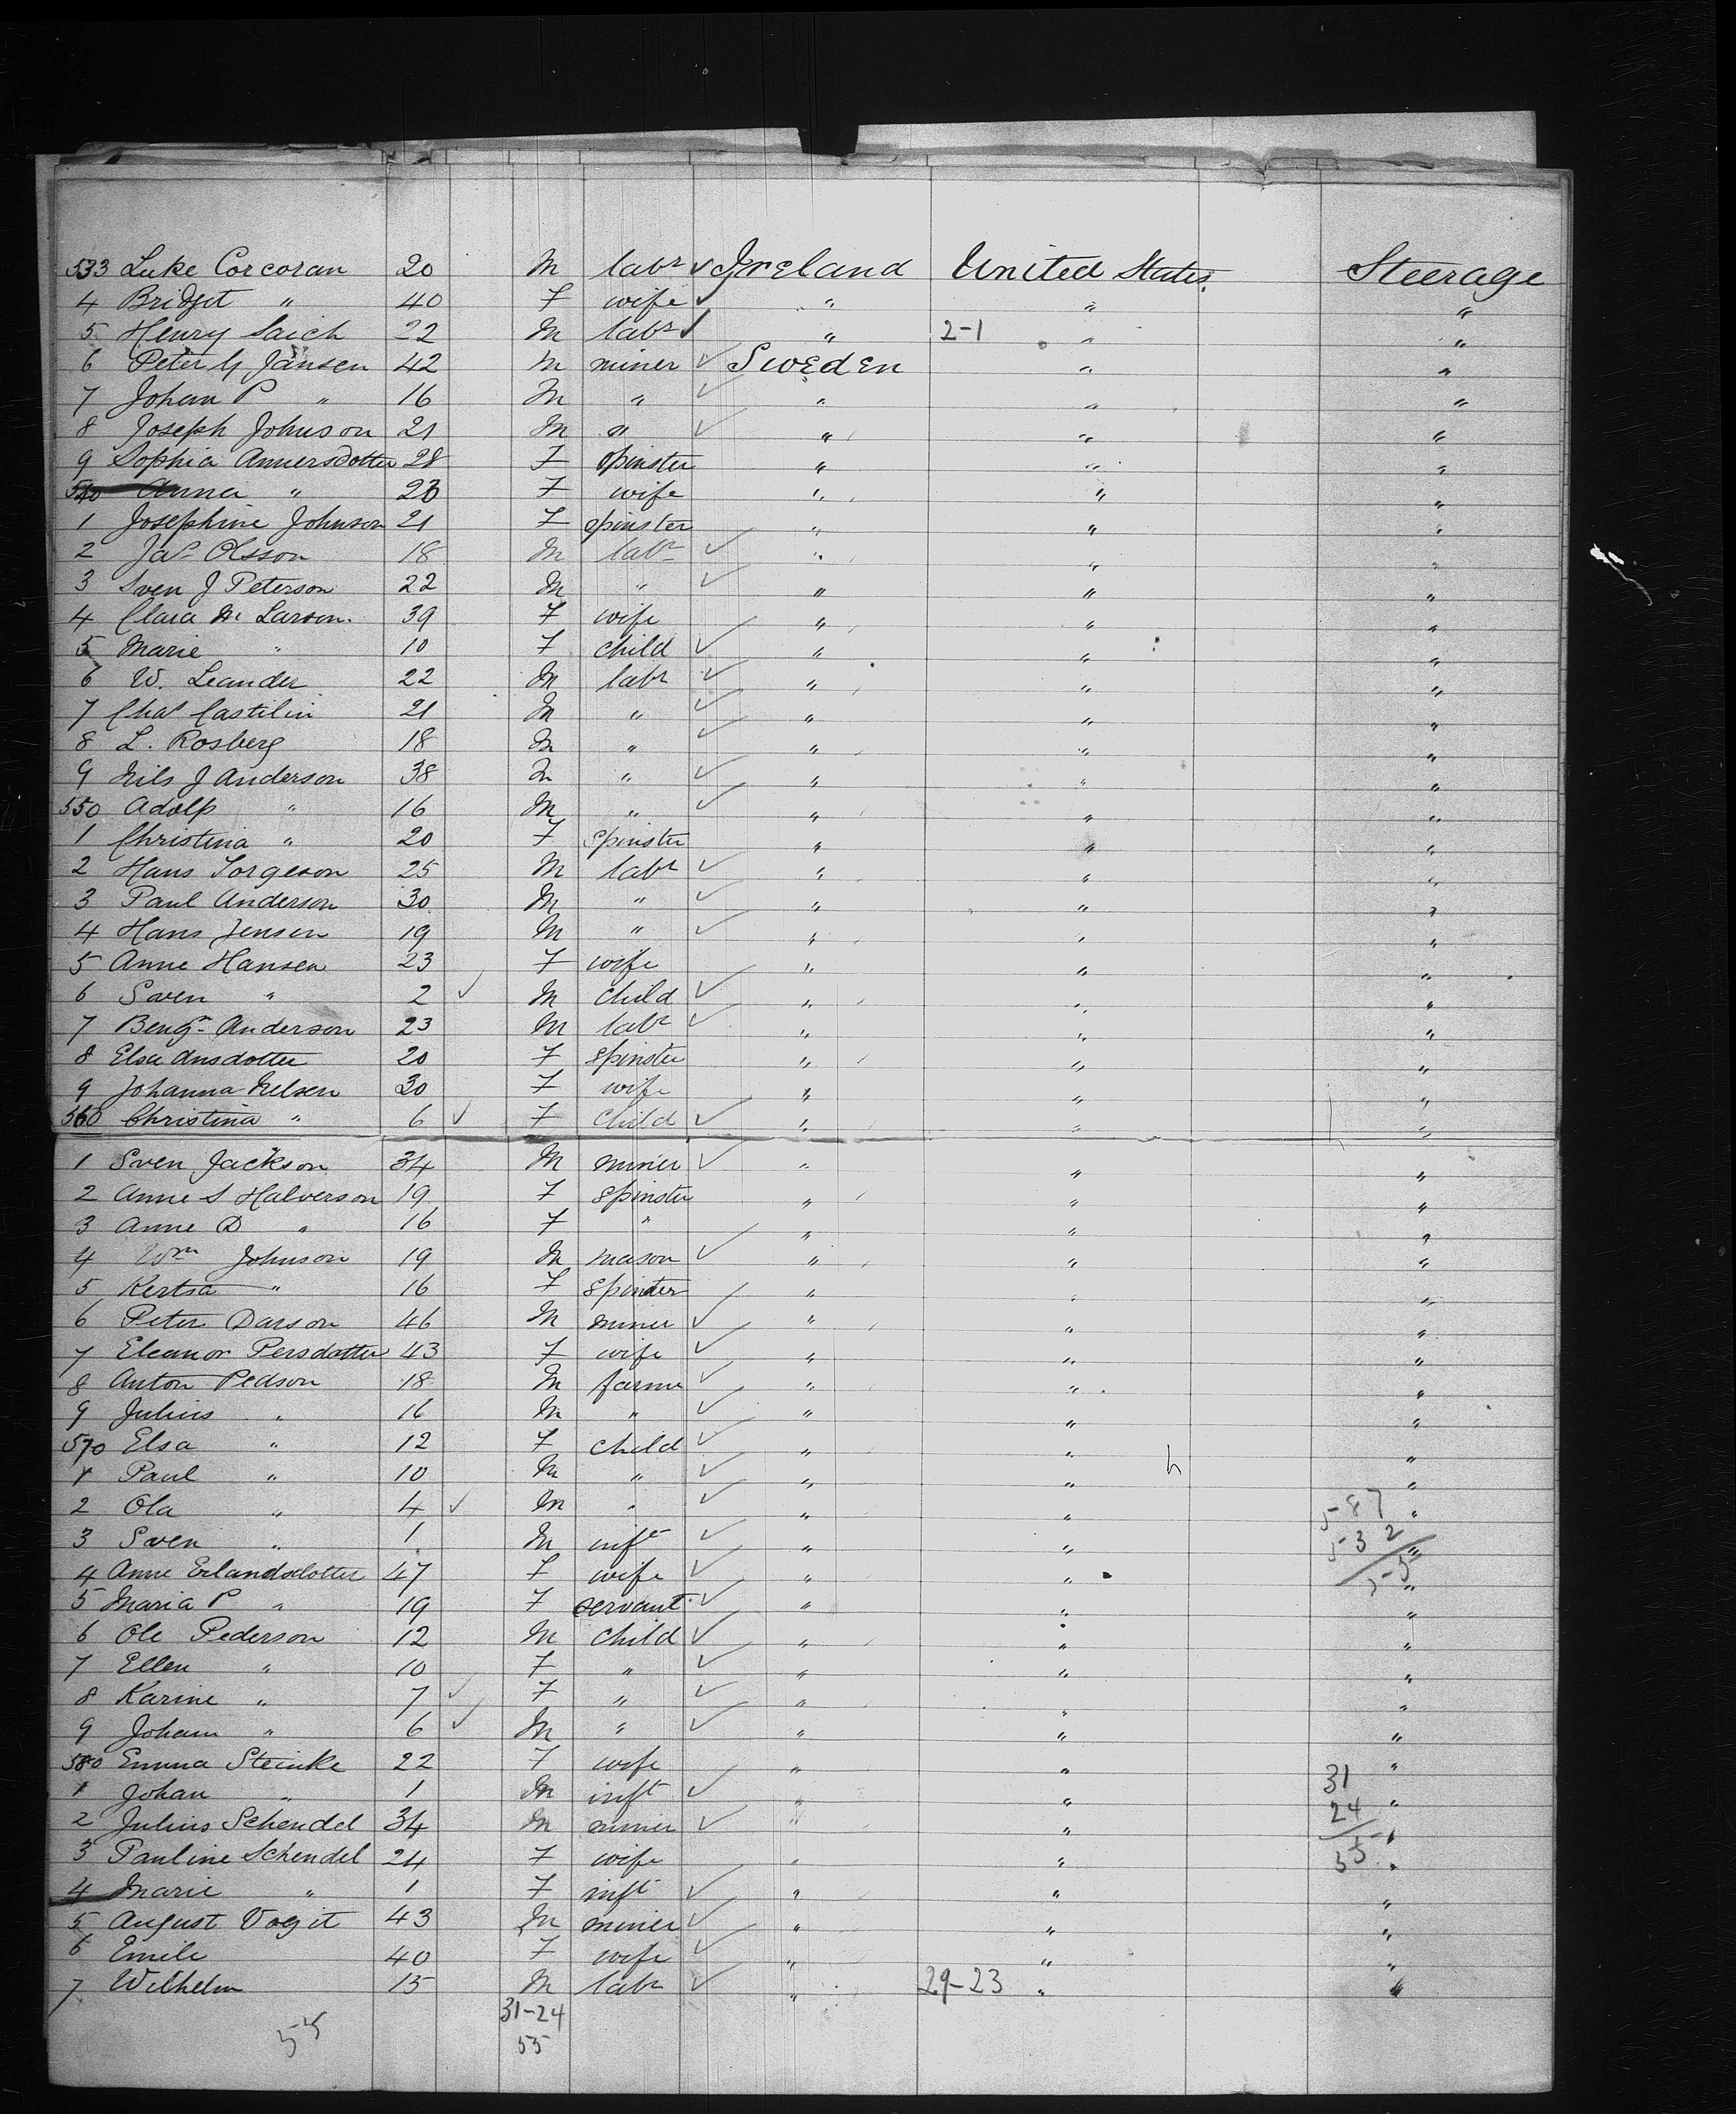 533 Luke Corcoran 20 M labr ✓ Ireland United States. Steerage
4 Bridget " 40 F wife ✓ " " "
5 Henry Saich 22 M labr ✓ " 2-1 " "
6 Peter G Jansen 42 M miner ✓ Sweden " "
7 Johan P " 16 M " ✓ " " "
8 Joseph Johnson 21 M " ✓ " " "
9 Sophia Annersdotter 28 F spinster " " "
540 Anna " 23 F wife " " "
1 Josephine Johnson 21 F spinster " " "
2 Jas Olsson 18 M labr ✓ " " "
3 Sven J Peterson 22 M " ✓ " " "
4 Clara M Larson. 39 F wife " " "
5 Marie " 10 F child ✓ " " "
6 W. Leander 22 M labr ✓ " " "
7 Chas Castilin 21 M " ✓ " " "
8 L. Rosberg 18 M " ✓ " " "
9 Nils J Anderson 38 M " ✓ " " "
550 Adolp " 16 M " ✓ " " "
1 Christina " 20 F spinster " " "
2 Hans Torgeson 25 M labr ✓ " " "
3 Paul Anderson 30 M " ✓ " " "
4 Hans Jensen 19 M " ✓ " " "
5 Anne Hansen 23 F wife " " "
6 Sven " 2 ✓ M child ✓ " " "
7 Bengn Anderson 23 M labr ✓ " " "
8 Elsa Ansdotter 20 F spinster " " "
9 Johanna Nelsen 30 F wife " " "
560 Christina " 6 ✓ F child ✓ " " "
1 Sven Jackson 34 M miner ✓ " " "
2 Anne S Halverson 19 F spinster " " "
3 Anne D " 16 F " " " "
4 Wm Johnson 19 M mason ✓ " " "
5 Kertsa " 16 F spinster " " "
6 Peter Darson 46 M miner ✓ " " "
7 Eleanor Persdotter 43 F wife ✓ " " "
8 Anton Pedson 18 M farmr ✓ " " "
9 Julius " 16 M " ✓ " " "
570 Elsa " 12 F child ✓ " " "
1 Paul " 10 M " ✓ " " "
2 Ola " 4 ✓ M " ✓ " " 587 "
3 Sven " 1 M inft ✓ " " 532 "
4 Anne Erlandsdotter 47 F wife ✓ " " 55 "
5 Maria P " 19 F servant ✓ " " "
6 Ole Pederson 12 M child ✓ " " "
7 Ellen " 10 F " ✓ " " "
8 Karine " 7 ✓ F " ✓ " " "
9 Johan " 6 ✓ M " ✓ " " "
580 Emma Steinke 22 F wife " " "
1 Johan " 1 M inft ✓ " " 31 "
2 Julius Schendel 34 M miner ✓ " " 24 "
3 Pauline Schendel 24 F wife " " 55 "
4 Marie " 1 F inft ✓ " " "
5 August Vogit 43 M miner ✓ " " "
6 Emile 40 F wife ✓ " " "
7 Wilhelm 15 M labr ✓ " 29-23 " "
31-24
55 55